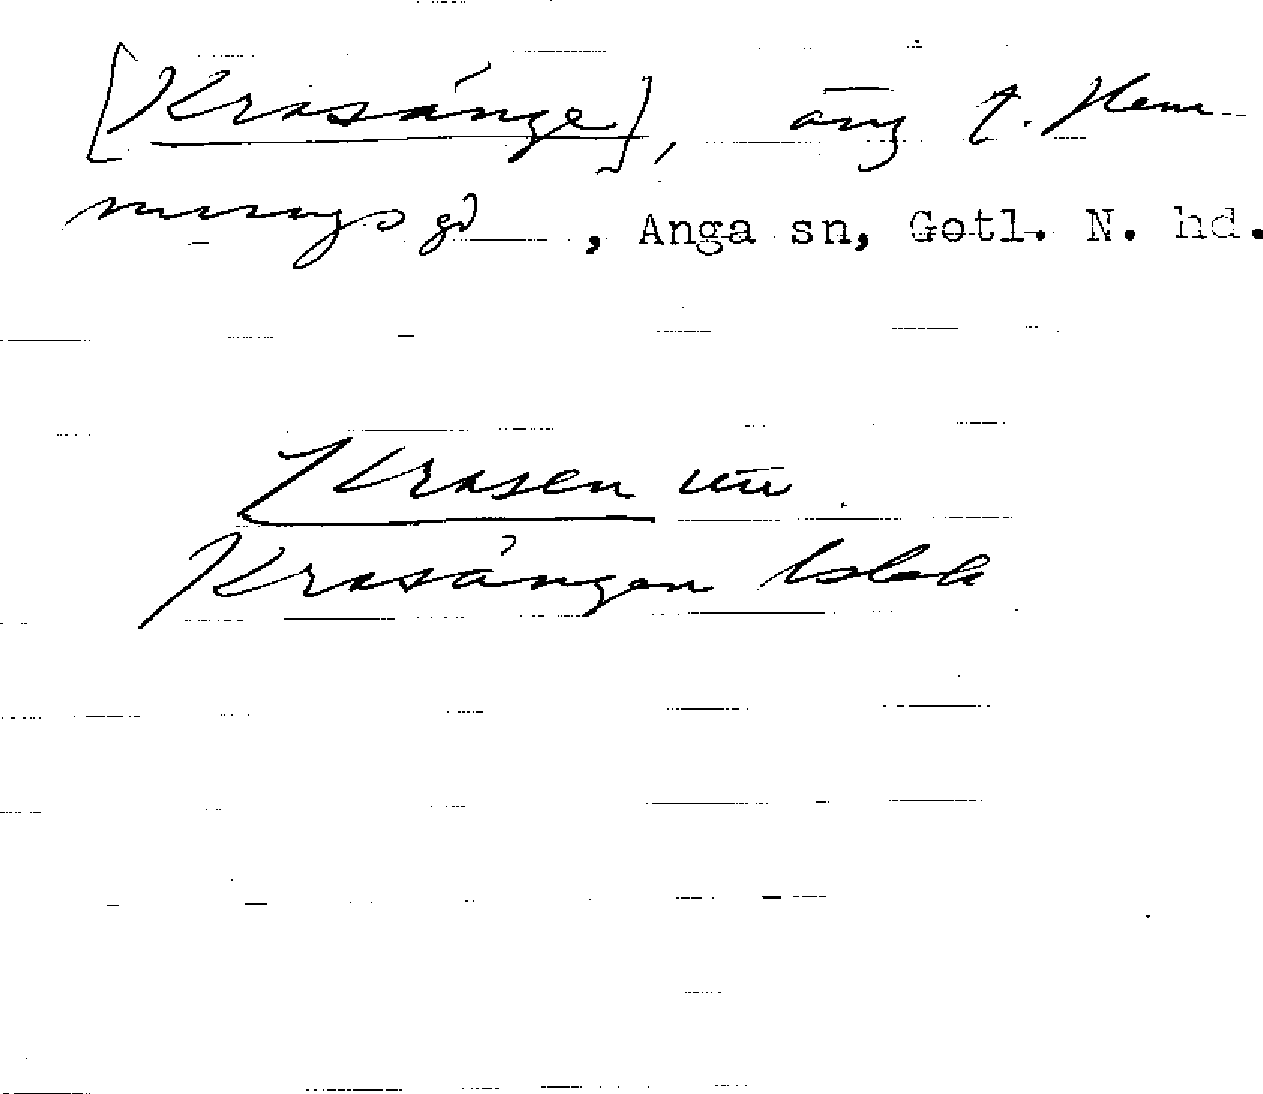 [Krasänge], äng t. Hem
mungs gd, Anga sn, Gotl. N. hd.
Krasen
Krasängen